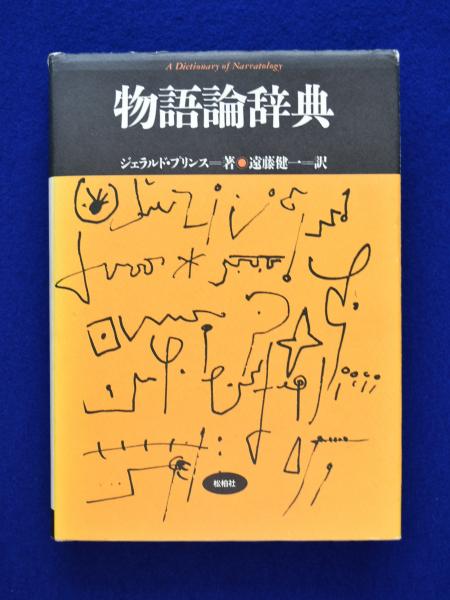 A Dictionary of Narratology
物語論辞典
ジェラルド・プリンス=著●遠藤健一=訳
松柏社